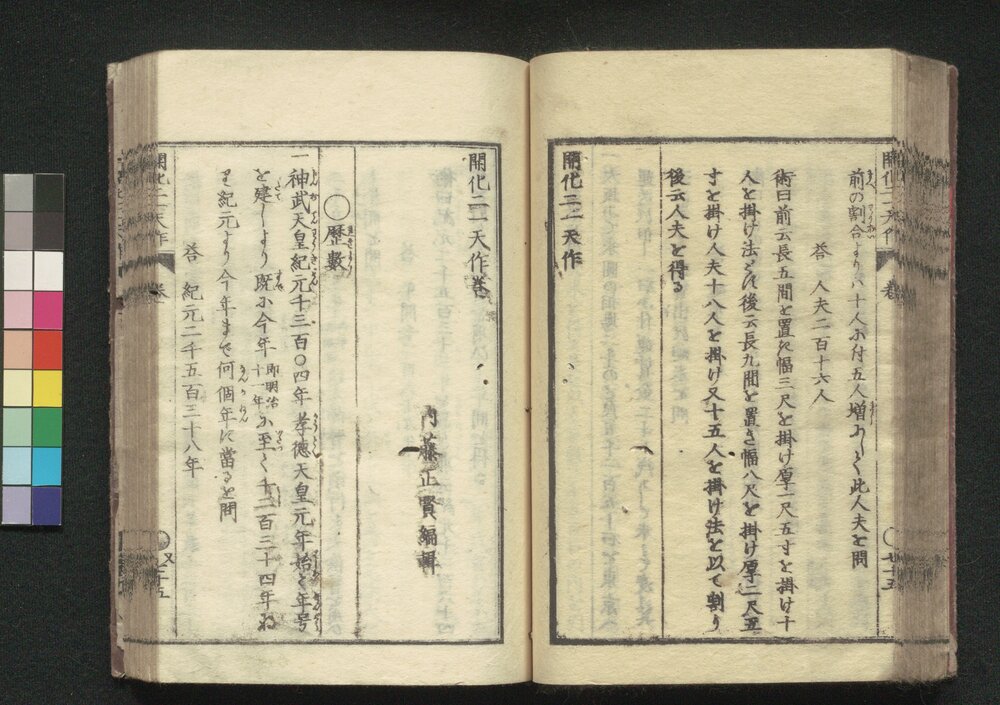 前の割合より八十人に付五人増にして此人夫を問
答 人夫二百十六人
術曰前云長五間を置き幅三尺を掛け厚一尺五寸を掛け十
人を掛け法とし後云長九間を置き幅八尺を掛け厚二尺五
寸を掛け人夫十八人を掛け又十五人を掛け法を以て割り
後云人夫を得る
開化二一天作
開化二一天作巻
内藤正賢編輯
○歴數
一神武天皇紀元千三百〇四年孝德天皇元年始て年号
を建しより既に今年即明治十一年に至て千二百三十四年ね
り紀元より今年まで何個年に當るを問
答 紀元二千五百三十八年